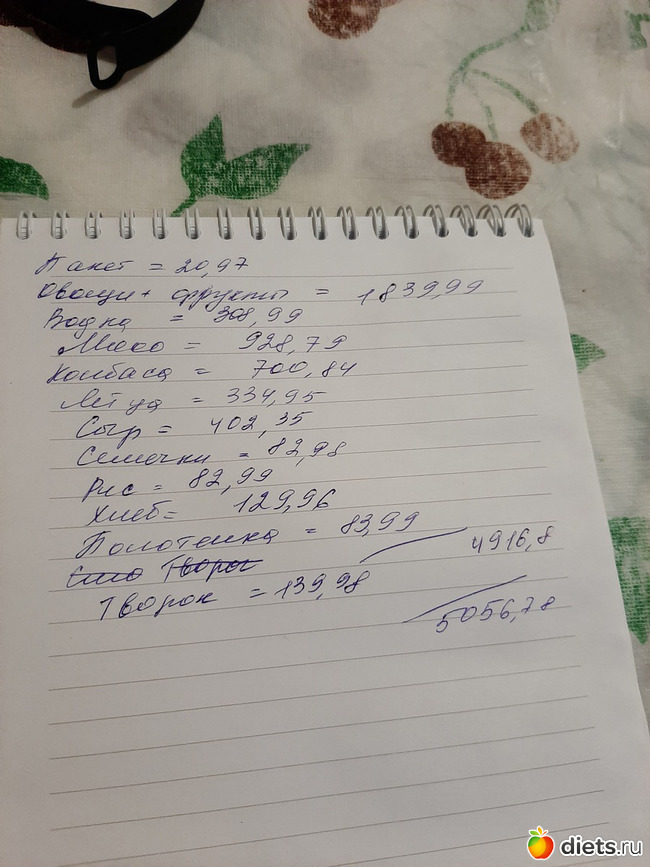 Пакет = 20,97
Овощи + фрукты = 1839,99
Водка = 308,99
Мясо = 928,79
Колбаса = 700,84
Яйца = 334,95
Сыр = 402,35
Семечки = 82,98
Рис = 82,99
Хлеб = 129,96
Полотенца = 83,99
4916,8
Творог
Творог = 139,98
5056,78
diets.ru